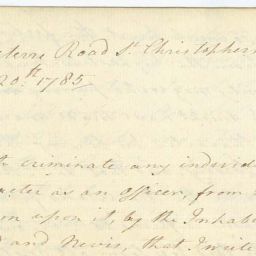 terre Road St Christophers
20.th 1785
criminate any individ
acter as an Officer, from
upon it, by the Inhabi
and Nevis, that I write